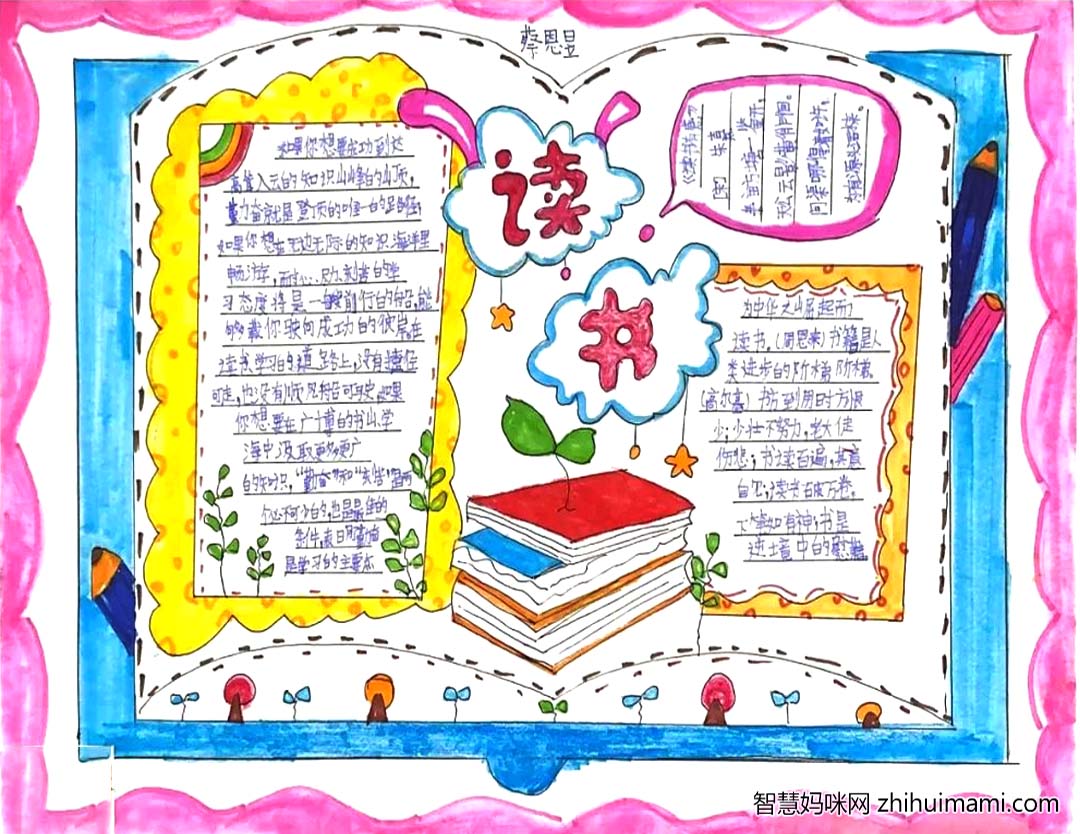 蔡恩昱
读
书
如果你想要成功到达
高耸入云的知识山峰的山顶，
勤奋就是登顶的唯一的路径；
如果你想在无边无际的知识海洋里
畅游，耐心、刻苦的学
习态度将是一艘前行的船，能
够载你驶向成功的彼岸在
读书学习的道路上，没有捷径
可走，也没有顺风船可驶，如果
你想要在广博的书山学
海中汲取更多更广
的知识，“勤奋”和“刻苦”是两
个必不可少的，也是最佳的
条件，表
是学习的主要态
[宋] 朱熹
半亩方塘一鉴开，
天光云影共徘徊。
问渠哪得清如许，
为有源头活水来。
为中华之崛起而
读书。（周恩来）书籍是人
类进步的阶梯阶梯。
（高尔基）书方到用时方恨
少；少壮不努力，老大徒
伤悲；书读百遍，其意
自见；读书破万卷，
下笔如有神；书是
逆境中的慰藉
智慧妈咪网 zhihuimami.com